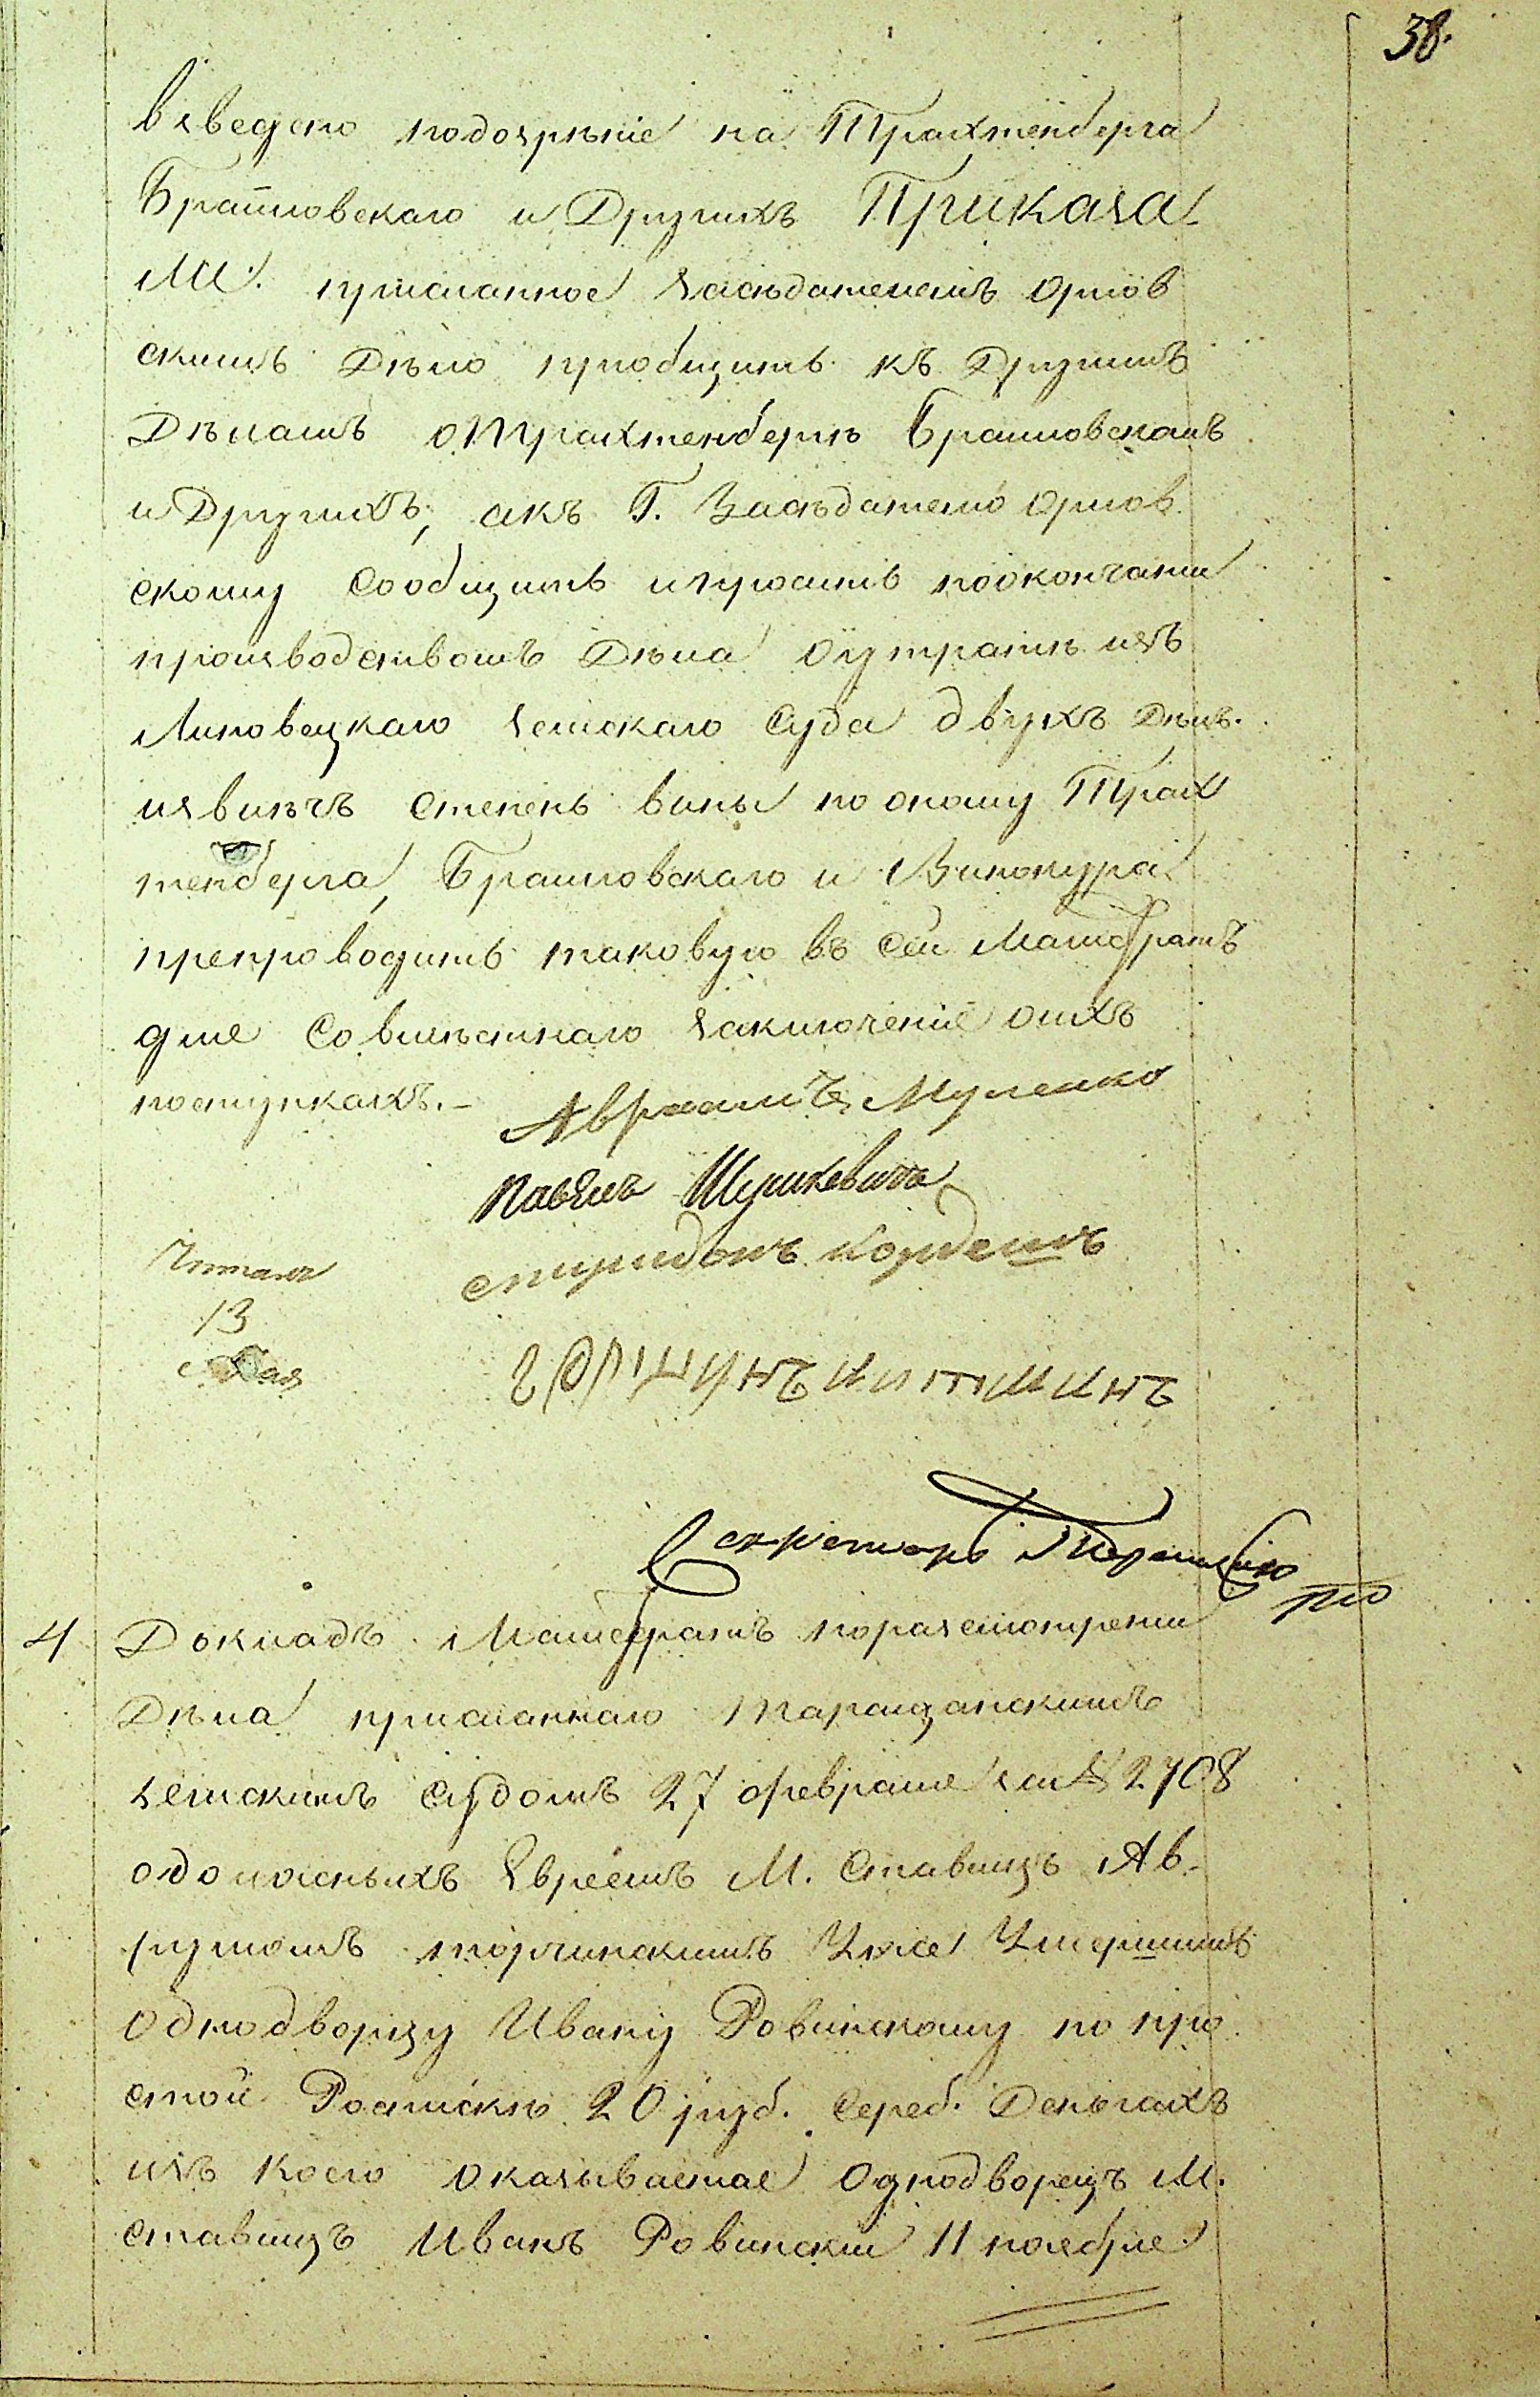 38.
взведено подозрѣніе на Трахтенберга
Браиловскаго и Другихъ Приказа
ли. присланное Засѣдателемъ Орлов
скимъ Дѣло пріобщить къ Другимъ
Дѣламъ о Трахтенбергѣ Браиловскомъ
и Другихъ, а къ Г. Засѣдателю Орлов
скому Сообщить и просить по окончаніи
производствомъ Дѣла о утратѣ изъ
Липовецкаго Земскаго Суда двухъ Дѣлъ.
извлечъ степень вины по оному Трах
тенберга, Браиловскаго и Винокура
препроводить таковую въ Сей Магистратъ
для Совмѣстнаго заключеніе о ихъ
поступкахъ. –
Авраамъ
Павелъ Шушкевичъ
спиридонъ Корделъ
Читалъ
13
Мая
китманъ
Секретарь
4 Докладъ Магистратъ по разсмотреніи
Дѣла присланнаго Таращанскимъ
Земскимъ Судомъ 27 февраля за № 2708
о должныхъ Евреемъ М. Ставищъ Ав-
румомъ Торчинскимъ Уже Умершимъ
однодворцу Ивану Ровинскому по про
стой Роспискѣ 20 руб. Сереб. Деньгахъ
изъ коего оказывается Однодворецъ М.
Ставищъ Иванъ Ровинскій 11 ноября